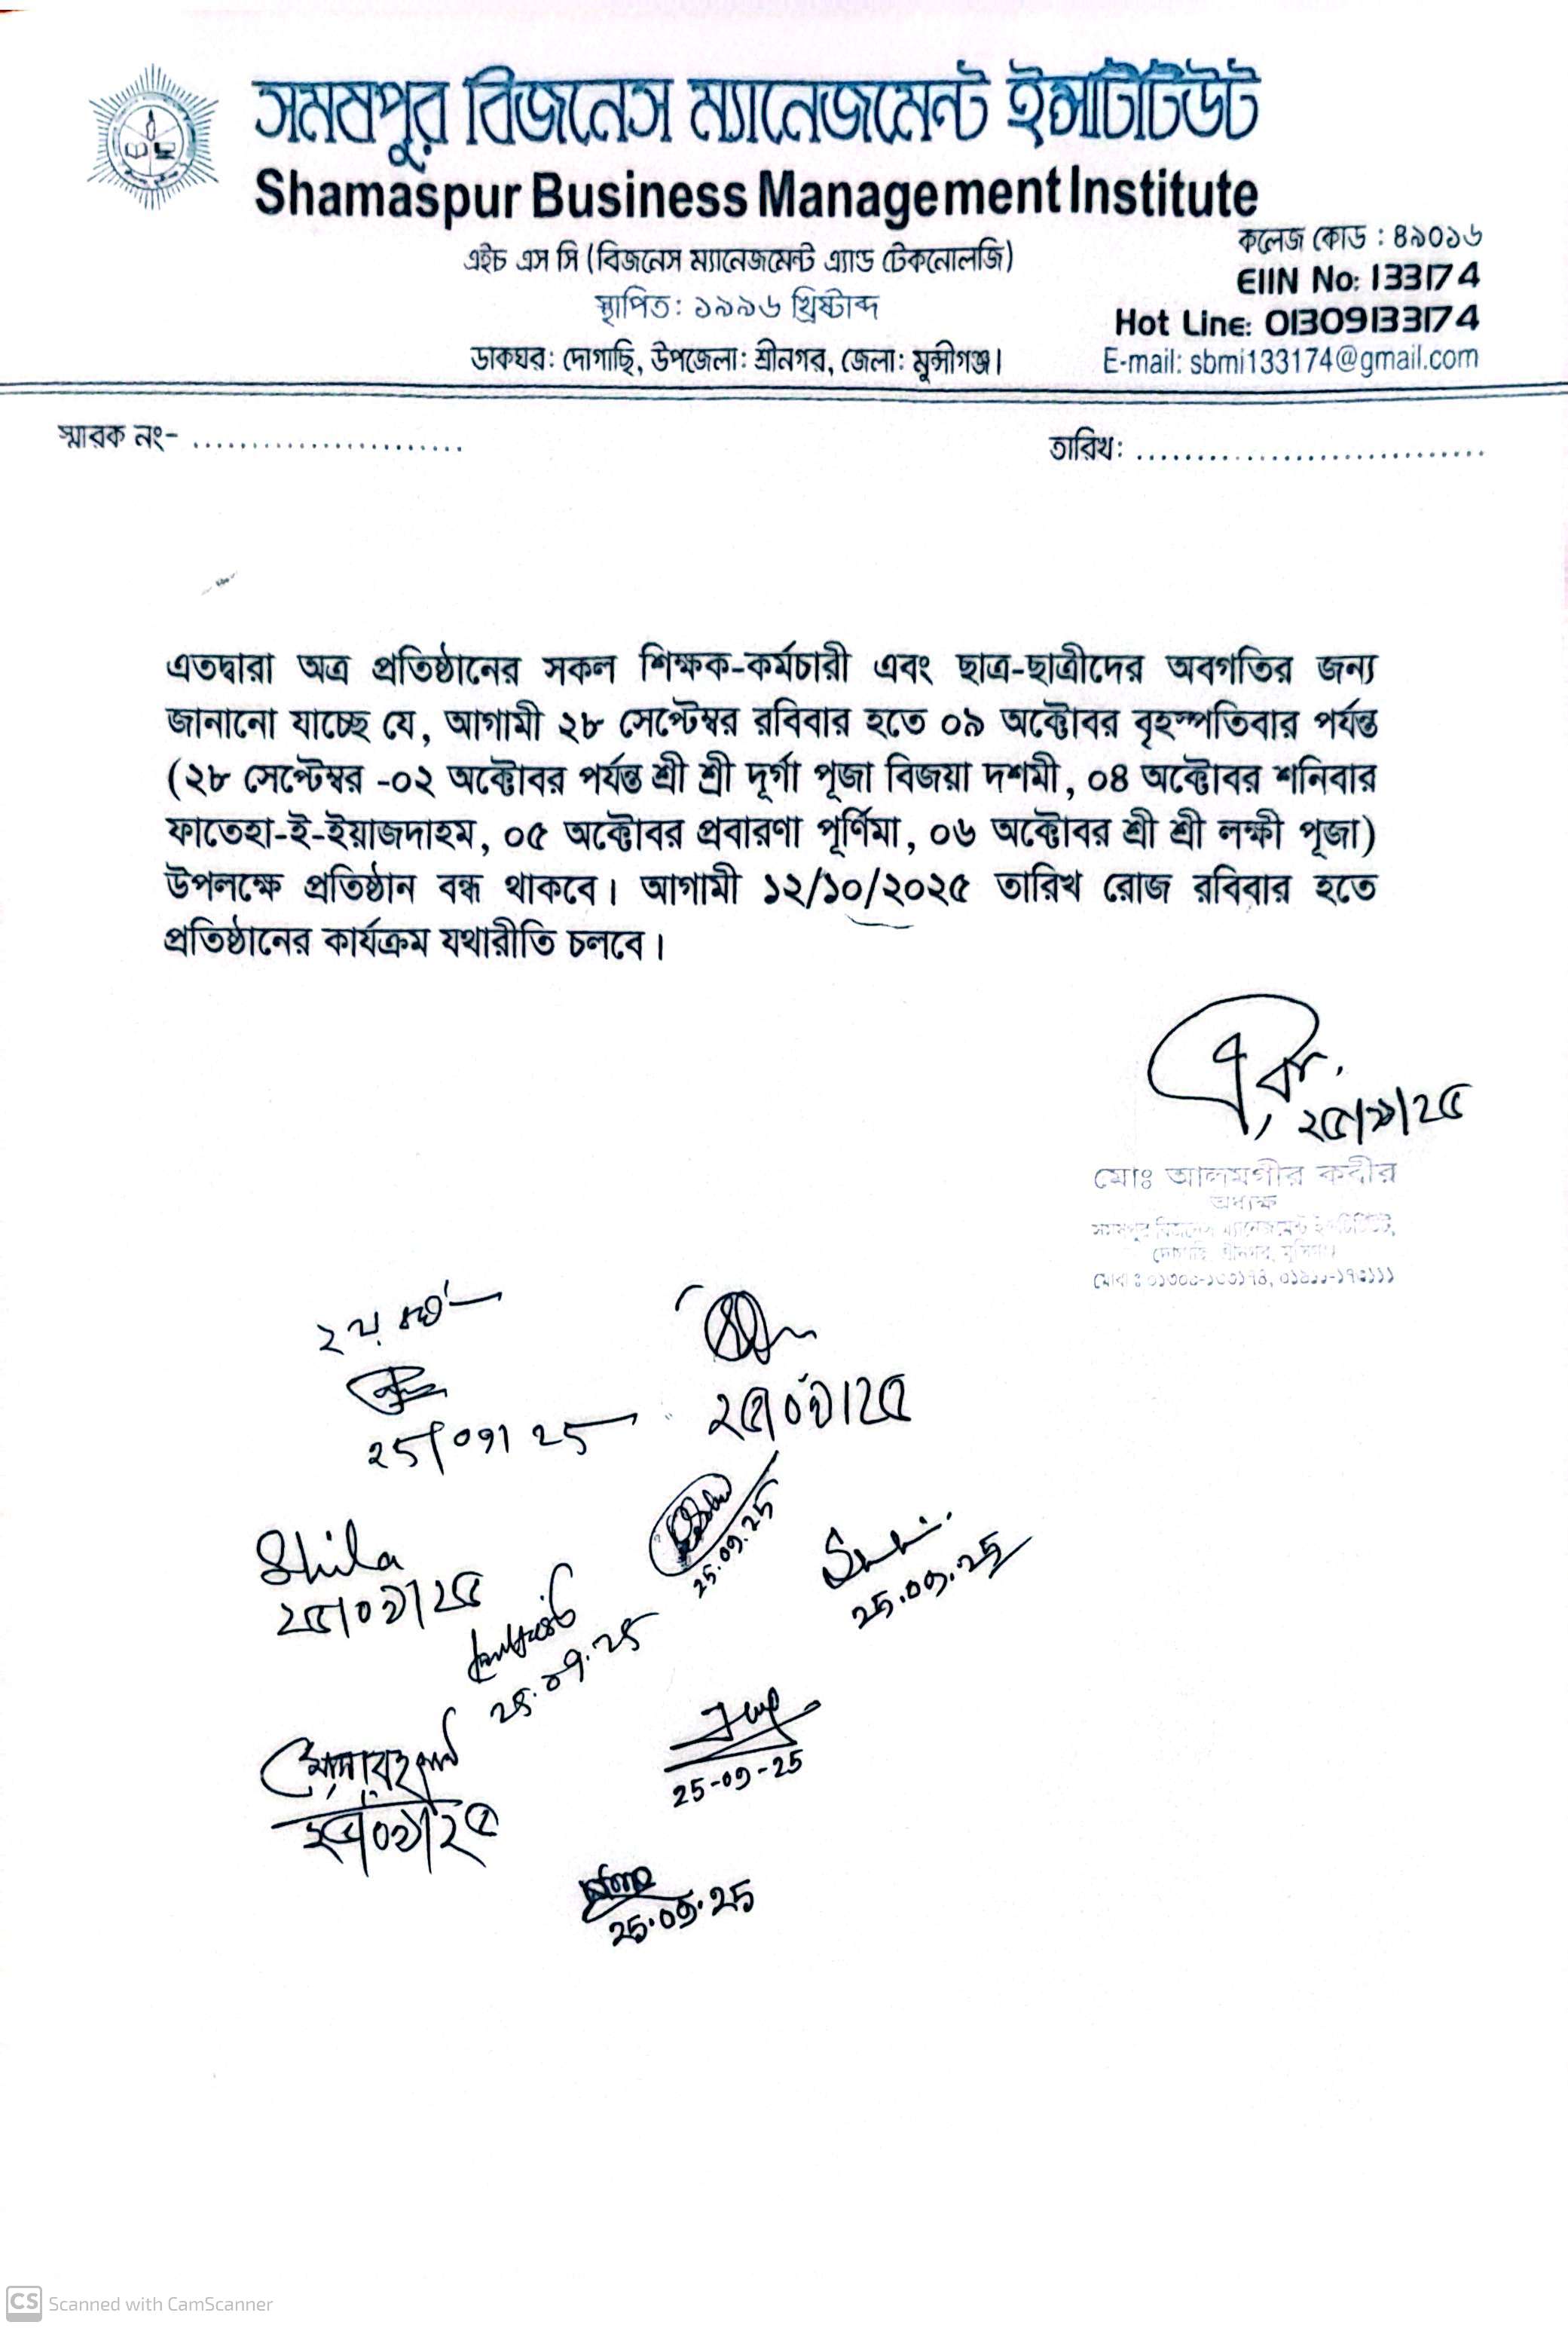 সমষপুর বিজনেস ম্যানেজমেন্ট ইন্সটিটিউট
Shamaspur Business Management Institute
এইচ এস সি (বিজনেস ম্যানেজমেন্ট এ্যাণ্ড টেকনোলজি)
স্থাপিত: ১৯৯৬ খ্রিষ্টাব্দ
ডাকঘর: দোগাছি, উপজেলা: শ্রীনগর, জেলা: মুন্সীগঞ্জ।
কলেজ কোড : ৪৯০১৬
EIIN No: 133174
Hot Line: 01309133174
E-mail: sbmi133174@gmail.com
স্মারক নং- .......................
তারিখ: .............................
এতদ্বারা অত্র প্রতিষ্ঠানের সকল শিক্ষক-কর্মচারী এবং ছাত্র-ছাত্রীদের অবগতির জন্য
জানানো যাচ্ছে যে, আগামী ২৮ সেপ্টেম্বর রবিবার হতে ০৯ অক্টোবর বৃহস্পতিবার পর্যন্ত
(২৮ সেপ্টেম্বর -০২ অক্টোবর পর্যন্ত শ্রী শ্রী দূর্গা পূজা বিজয়া দশমী, ০৪ অক্টোবর শনিবার
ফাতেহা-ই-ইয়াজদাহম, ০৫ অক্টোবর প্রবারণা পূর্ণিমা, ০৬ অক্টোবর শ্রী শ্রী লক্ষী পূজা)
উপলক্ষে প্রতিষ্ঠান বন্ধ থাকবে। আগামী ১২/১০/২০২৫ তারিখ রোজ রবিবার হতে
প্রতিষ্ঠানের কার্যক্রম যথারীতি চলবে।
২৫/৯/২৫
মোঃ আলমগীর কবীর
অধ্যক্ষ
সমষপুর বিজনেস ম্যানেজমেন্ট ইন্সটিটিউট,
দোগাছি, শ্রীনগর, মুন্সিগঞ্জ।
25/09/25
২৫/০৯/২৫
Shila
২৫/০৯/২৫
25.09.25
25.09.25
25.09.25
25-09-25
২৫/০৯/২৫
25.09.25
CS Scanned with CamScanner